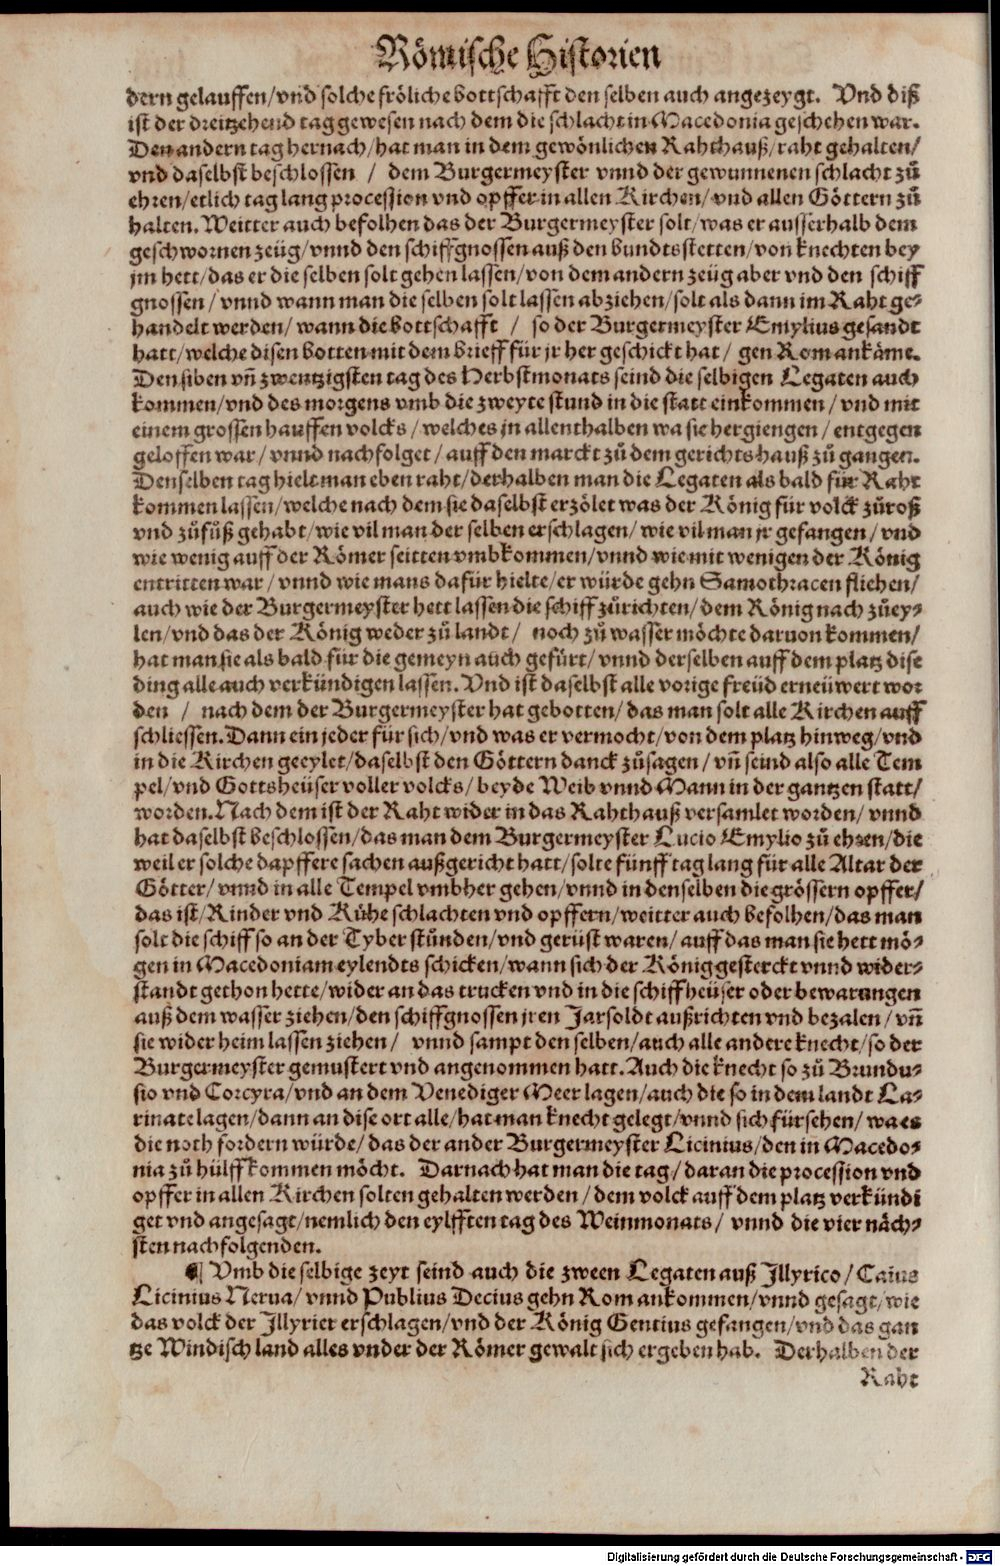 Römische Historien
dern gelauffen/vnd solche fröliche bottschafft den selben auch angezeygt. Vnd diß
ist der dreitzehend tag gewesen nach dem die schlacht in Macedonia geschehen war.
Den andern tag hernach/hat man in dem gewönlichen Rahthauß/raht gehalten/
vnd daselbst beschlossen / dem Burgermeyster vnnd der gewunnenen schlacht zů
ehren/etlich tag lang procession vnd opffer in allen Kirchen/vnd allen Göttern zů
halten. Weitter auch befolhen das der Burgermeyster solt/was er ausserhalb dem
geschwornen zeüg/vnnd den schiffgnossen auß den bundtsstetten/von knechten bey
jm hett/das er die selben solt gehen lassen/von dem andern zeüg aber vnd den schiff
gnossen/vnnd wann man die selben solt lassen abziehen/solt als dann im Raht ge⸗
handelt werden/wann die bottschafft / so der Burgermeyster Emylius gesandt
hatt/welche disen botten mit dem brieff für jr her geschickt hat/ gen Rom ankäme.
Den siben vn̄ zwentzigsten tag des Herbstmonats seind die selbigen Legaten auch
kommen/vnd des morgens vmb die zweyte stund in die statt einkommen/vnd mit
einem grossen hauffen volcks/welches jn allenthalben wa sie hergiengen/entgegen
geloffen war/vnnd nachfolget/auff den marckt zů dem gerichtshauß zů gangen.
Denselben tag hielt man eben raht/derhalben man die Legaten als bald für Raht
kommen lassen/welche nach dem sie daselbst erzölet was der König für volck zůroß
vnd zůfůß gehabt/wie vil man der selben erschlagen/wie vil man jr gefangen/vnd
wie wenig auff der Römer seitten vmbkommen/vnnd wie mit wenigen der König
entritten war/vnnd wie mans dafür hielte/er würde gehn Samothracen fliehen/
auch wie der Burgermeyster hett lassen die schiff zůrichten/dem König nach zůey⸗
len/vnd das der König weder zů landt/ noch zů wasser möchte daruon kommen/
hat man sie als bald für die gemeyn auch gefürt/vnnd derselben auff dem platz dise
ding alle auch verkündigen lassen. Vnd ist daselbst alle vorige freüd erneüwert wor
den / nach dem der Burgermeyster hat gebotten/das man solt alle Kirchen auff
schliessen. Dann ein jeder für sich/vnd was er vermocht/von dem platz hinweg/vnd
in die Kirchen geeylet/daselbst den Göttern danck zůsagen/vn̄ seind also alle Tem
pel/vnd Gottsheüser voller volcks/beyde Weib vnnd Mann in der gantzen statt/
worden. Nach dem ist der Raht wider in das Rahthauß versamlet worden/vnnd
hat daselbst beschlossen/das man dem Burgermeyster Lucio Emylio zů ehren/die
weil er solche dapffere sachen außgericht hatt/solte fünff tag lang für alle Altar der
Götter/vnnd in alle Tempel vmbher gehen/vnnd in denselben die grössern opffer/
das ist/Rinder vnd Kůhe schlachten vnd opffern/weitter auch befolhen/das man
solt die schiff so an der Tyber stůnden/vnd gerüst waren/auff das man sie hett mö⸗
gen in Macedoniam eylendts schicken/wann sich der König gesterckt vnnd wider⸗
standt gethon hette/wider an das trucken vnd in die schiffheüser oder bewarungen
auß dem wasser ziehen/den schiffgnossen jren Jarsoldt außrichten vnd bezalen/vn̄
sie wider heim lassen ziehen/ vnnd sampt den selben/auch alle andere knecht/so der
Burgermeyster gemustert vnd angenommen hatt. Auch die knecht so zů Brundu⸗
sio vnd Corcyra/vnd an dem Venediger Meer lagen/auch die so in dem landt La⸗
rinate lagen/dann an dise ort alle/hat man knecht gelegt/vnnd sich fürsehen/wa es
die noth fordern würde/das der ander Burgermeyster Licinius/den in Macedo⸗
nia zů hülff kommen möcht. Darnach hat man die tag/daran die procession vnd
opffer in allen Kirchen solten gehalten werden/dem volck auff dem platz verkündi
get vnd angesagt/nemlich den eylfften tag des Weinmonats/ vnnd die vier näch⸗
sten nachfolgenden.
¶ Vmb die selbige zeyt seind auch die zween Legaten auß Jllyrico/Caius
Licinius Nerua/vnnd Publius Decius gehn Rom ankommen/vnnd gesagt/wie
das volck der Jllyrier erschlagen/vnd der König Gentius gefangen/vnd das gan
tze Windisch land alles vnder der Römer gewalt sich ergeben hab. Derhalben der
Raht
Digitalisierung gefördert durch die Deutsche Forschungsgemeinschaft - DFG